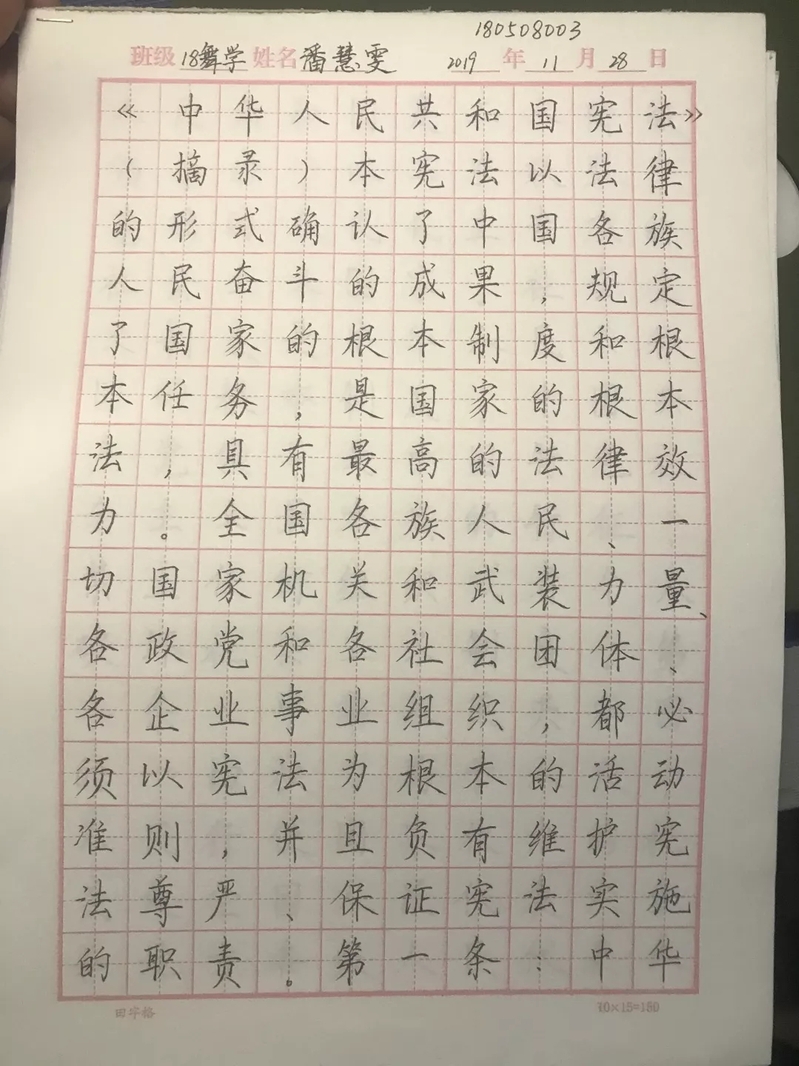 180508003
班级 18舞学 姓名 潘慧雯 2019 年 11 月 28 日
《中华人民共和国宪法》
(摘录)本宪法以法律
的形式确认了中国各族
人民奋斗的成果,规定
了国家的根本制度和根
本任务,是国家的根本
法,具有最高的法律效
力。全国各族人民、一
切国家机关和武装力量、
各政党和各社会团体、
各企业事业组织,都必
须以宪法为根本的活动
准则,并且负有维护宪
法尊严、保证宪法实施
的职责。第一条:中华
田字格 10×15=150